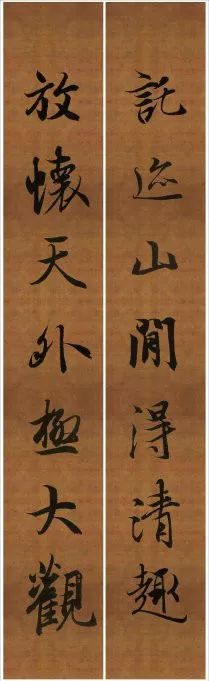 託迹山間得清趣
放懷天外極大觀